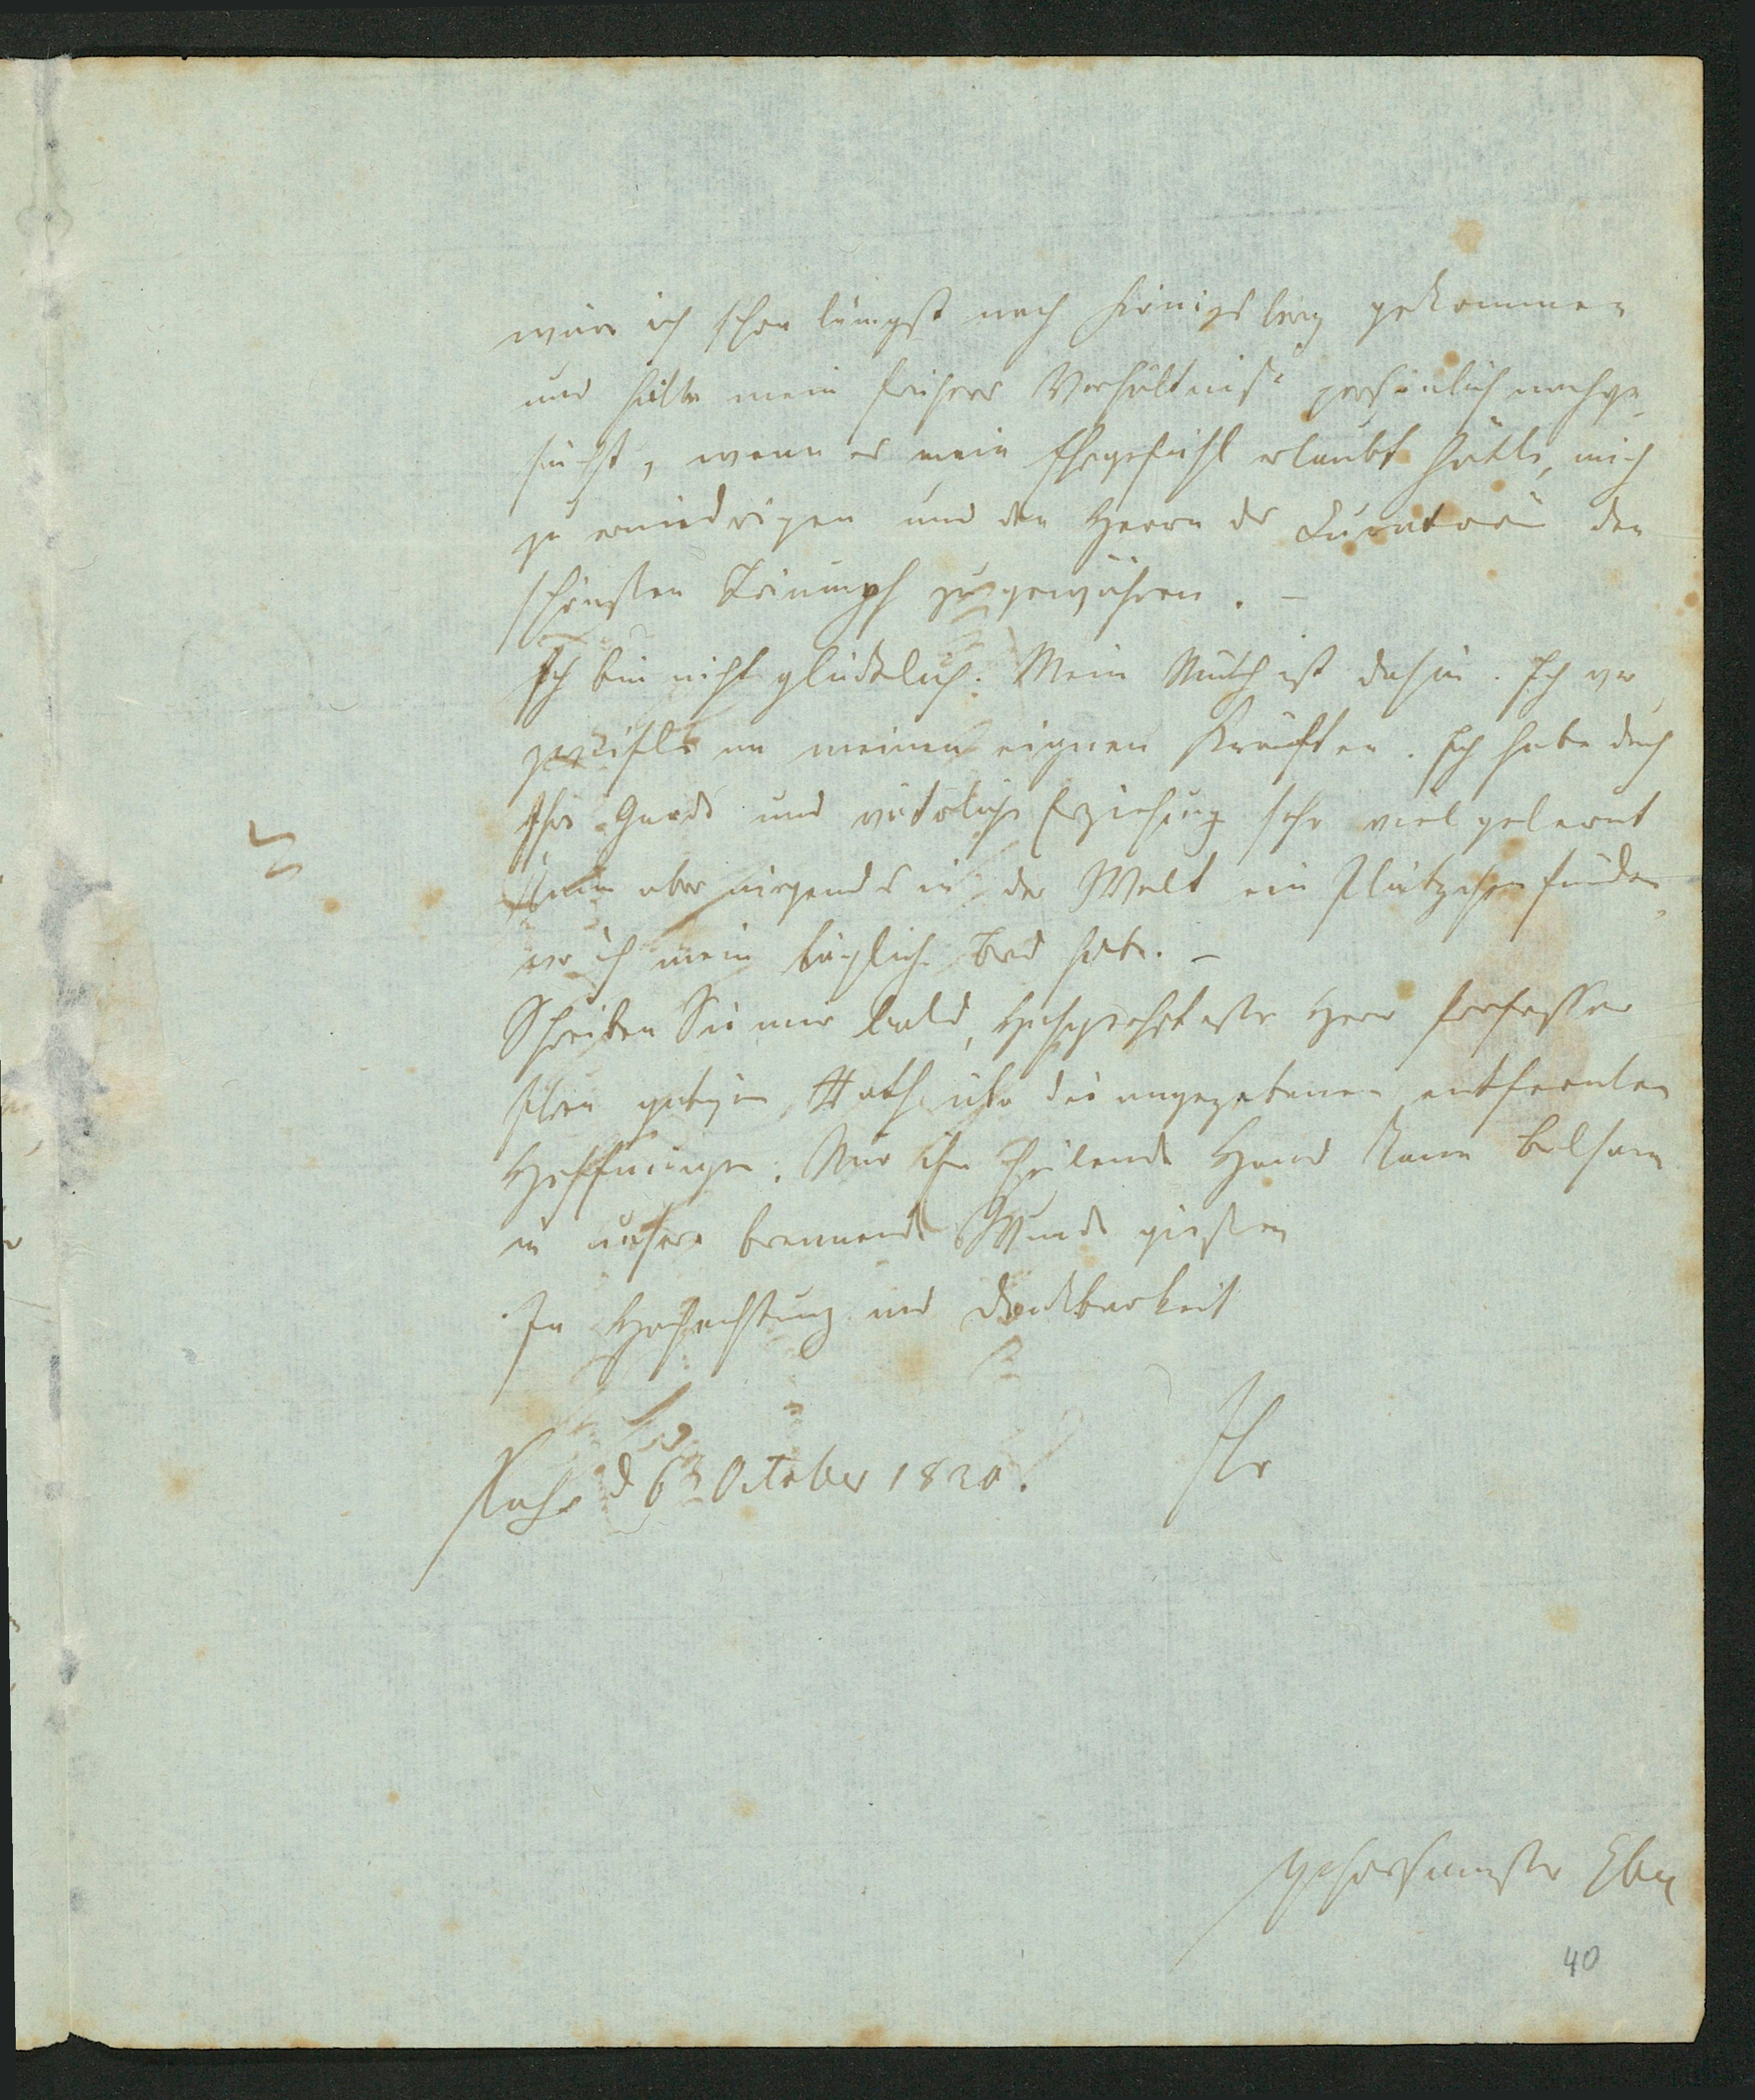 wäre ich schon längst nach Königsberg gekommen
und hätte mein früheres Verhältniß persönlich nachge
sucht, wenn es mein Ehrgefühl erlaubt hätte, mich
zu erniedrigen und den Herrn der Curatoren den
schönsten Triumph zu gewähren. –
Ich bin nicht glücklich. Mein Muth ist dahin. Ich ver
zweifle an meinen eignen Kräften. Ich habe durch
Ihre Güte und väterliche Erziehung sehr viel gelernt
kann aber nirgends in der Welt ein Plätzchen finden,
wo ich mein täglich Brod habe. –
Schreiben Sie mir bald, Hochgeehrtester Herr Professor
Ihren gütigen Rath über die angegebenen entfernten
Hoffnungen. Nur ihre heilende Hand kann Balsam
in unsere brennende Wunde gießen
In Hochachtung und Dankbarkeit
Ihr
d 6 October 1820.
gehorsamster
40